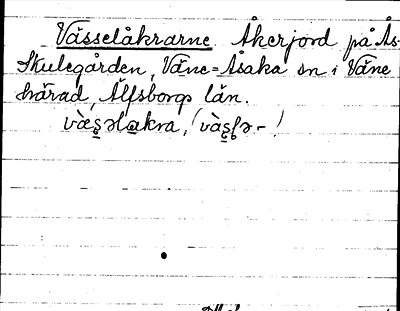 Vässelåkrarne Åkerjord på Ås-
Skulegården, Väne-Åsaka sn i Väne
härad, Älfsborgs län.